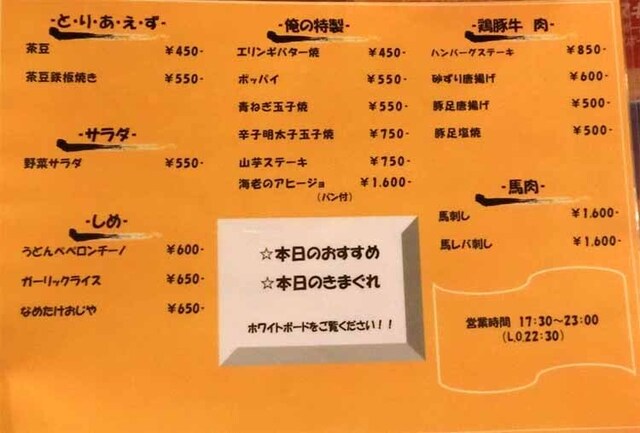 -と・り・あ・え・ず-
茶豆 ¥450-
茶豆鉄板焼き ¥550-
-サラダ-
野菜サラダ ¥550-
-しめ-
うどんペペロンチーノ ¥600-
ガーリックライス ¥650-
なめたけおじや ¥650-
-俺の特製-
エリンギバター焼 ¥450-
ポッパイ ¥550-
青ねぎ玉子焼 ¥550-
辛子明太子玉子焼 ¥750-
山芋ステーキ ¥750-
海老のアヒージョ ¥1.600-
(パン付)
☆本日のおすすめ
☆本日のきまぐれ
ホワイトボードをご覧ください！！
-鶏豚牛 肉-
ハンバーグステーキ ¥850-
砂ずり唐揚げ ¥600-
豚足唐揚げ ¥500-
豚足塩焼 ¥500-
-馬肉-
馬刺し ¥1.600-
馬レバ刺し ¥1.600-
営業時間 17:30～23:00
(L.O.22:30)